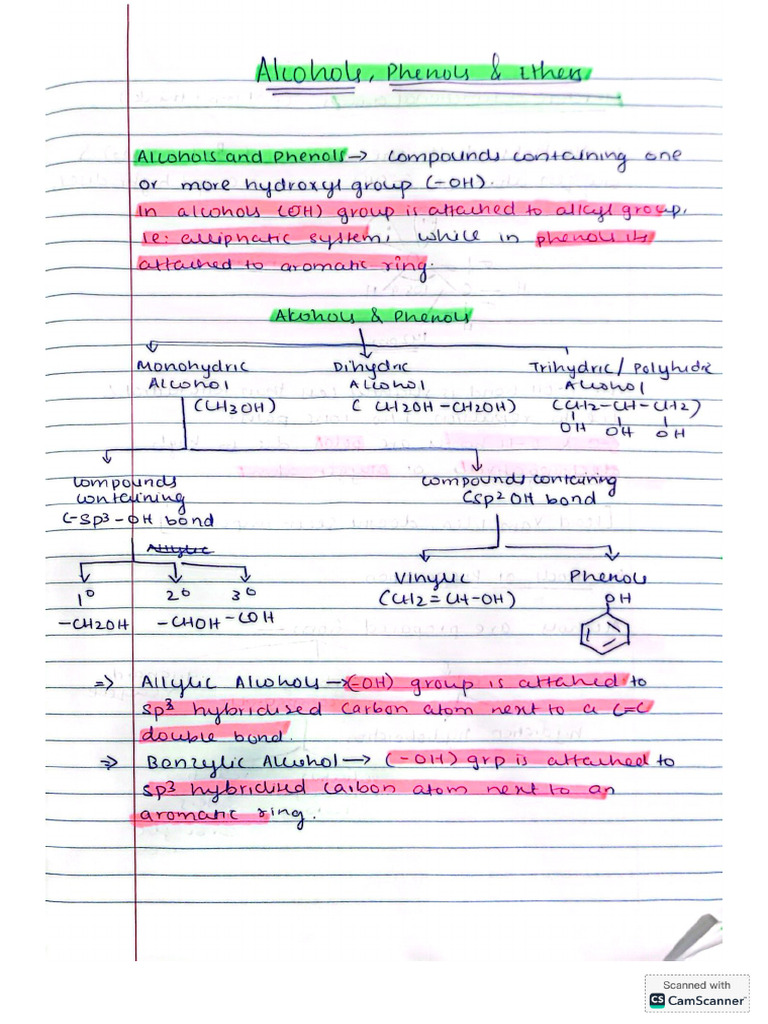 Alcohols, Phenols & ethers
Alcohols and Phenols → compounds containing one
or more hydroxyl group (-OH).
In alcohols (OH) group is attached to alkyl group,
ie: alliphatic system, while in phenol its
attached to aromatic ring.
Alcohols & Phenols
Monohydric Alcohol
(CH3OH)
Dihydric Alcohol
( CH2OH-CH2OH)
Trihydric/Polyhidric Alcohol
(CH2-CH-CH2)
OH OH OH
compounds
containing
C-sp3-OH bond
compounds containing
Csp2 OH bond
Allylic
1° 2° 3°
-CH2OH -CHOH -COH
Vinylic
(CH2=CH-OH)
Phenols
OH
⇒ Allylic Alcohols → (-OH) group is attached to
sp3 hybridised carbon atom next to a C=C
double bond.
⇒ Benzylic Alcohol → (-OH) grp is attached to
sp3 hybridised carbon atom next to an
aromatic ring.
Scanned with
CS CamScanner